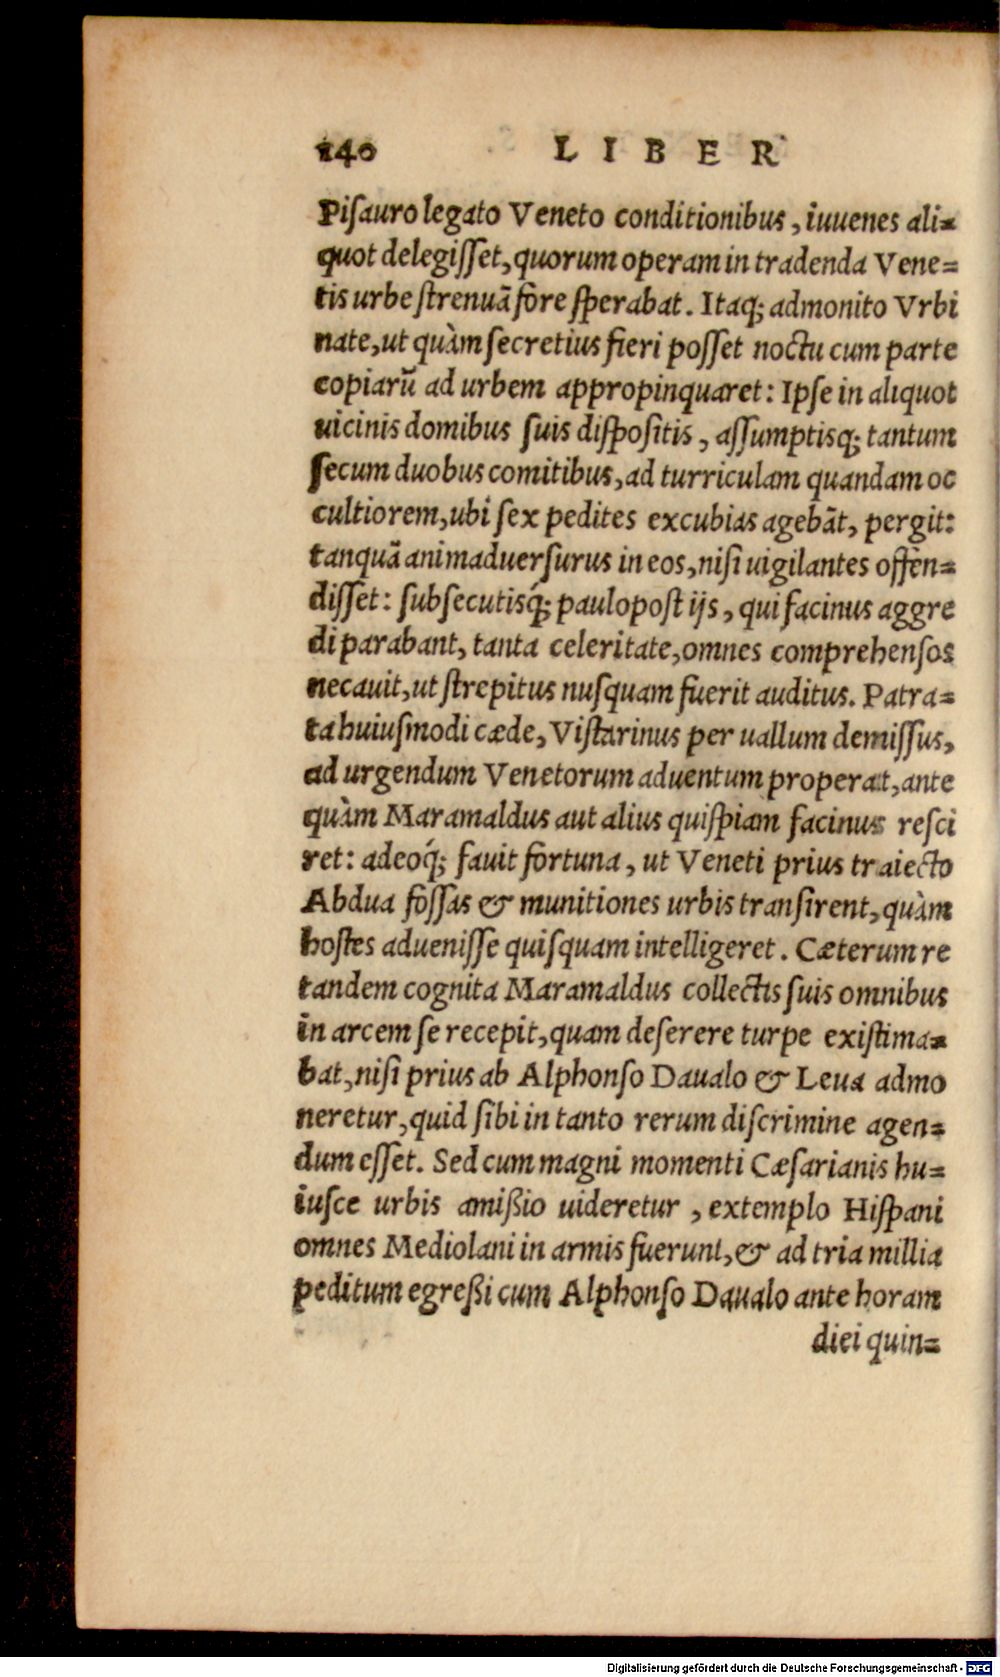 140 LIBER
Pisauro legato Veneto conditionibus, iuuenes ali-
quot delegisset, quorum operam in tradenda Vene-
tis urbe strenuã fore sperabat. Itaq; admonito Vrbi
nate, ut quàm secretius fieri posset noctu cum parte
copiarũ ad urbem appropinquaret: Ipse in aliquot
uicinis domibus suis dispositis, assumptisq; tantum
secum duobus comitibus, ad turriculam quandam oc
cultiorem, ubi sex pedites excubias agebãt, pergit:
tanquã animaduersurus in eos, nisi uigilantes offen-
disset: subsecutisq́; paulopost ijs, qui facinus aggre
di parabant, tanta celeritate, omnes comprehensos
necauit, ut strepitus nusquam fuerit auditus. Patra-
ta huiusmodi cæde, Vistarinus per uallum demissus,
ad urgendum Venetorum aduentum properat, ante
quàm Maramaldus aut alius quispiam facinus resci
ret: adeoq́; fauit fortuna, ut Veneti prius traiecto
Abdua fossas & munitiones urbis transirent, quàm
hostes aduenisse quisquam intelligeret. Cæterum re
tandem cognita Maramaldus collectis suis omnibus
in arcem se recepit, quam deserere turpe existima-
bat, nisi prius ab Alphonso Daualo & Leua admo
neretur, quid sibi in tanto rerum discrimine agen-
dum esset. Sed cum magni momenti Cæsarianis hu-
iusce urbis amißio uideretur, extemplo Hispani
omnes Mediolani in armis fuerunt, & ad tria millia
peditum egreßi cum Alphonso Daualo ante horam
diei quin-
Digitalisierung gefördert durch die Deutsche Forschungsgemeinschaft - DFG